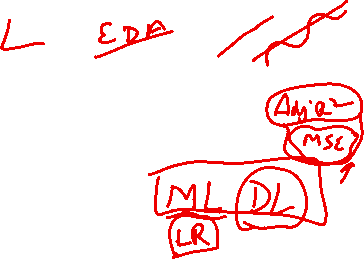 L EDA
Adj R²
MSE
ML DL
LR